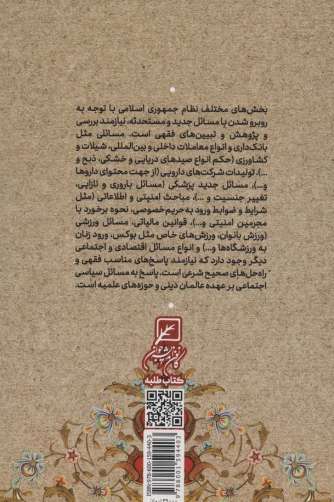 بخش‌های مختلف نظام جمهوری اسلامی با توجه به
روبرو شدن با مسائل جدید و مستحدثه، نیازمند بررسی
و پژوهش و تبیین‌های فقهی است. مسائلی مثل
بانکداری و انواع معاملات داخلی و بین‌المللی، شیلات و
کشاورزی (حکم انواع صیدهای دریایی و خشکی، ذبح و
و...)، تولیدات شرکت‌های دارویی (از جهت محتوای داروها
و...)، مسائل جدید پزشکی (مسائل باروری و نازایی،
تغییر جنسیت و ...)، مباحث امنیتی و اطلاعاتی (مثل
شرایط و ضوابط ورود به حریم خصوصی، نحوه برخورد با
مجرمین امنیتی و...)، قوانین مالیاتی، مسائل ورزشی
(ورزش بانوان، ورزش‌های خاص مثل بوکس، ورود زنان
به ورزشگاه‌ها و...) و انواع مسائل اقتصادی و اجتماعی
دیگر وجود دارد که نیازمند پاسخ‌های مناسب فقهی و
راه‌حل‌های صحیح شرعی است. پاسخ به مسائل سیاسی
اجتماعی بر عهده عالمان دینی و حوزه‌های علمیه است.
کتاب طلبه